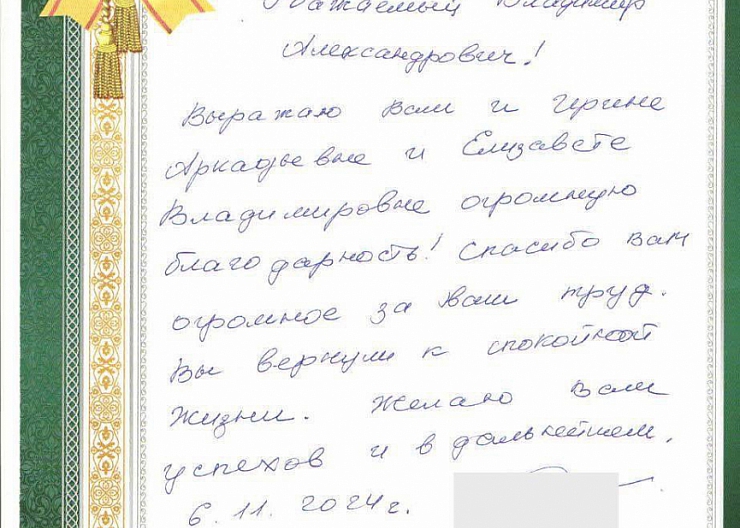 Уважаемый Владимир
Александрович!
Выражаю Вам и Ирине
Аркадьевне и Елизавете
Владимировне огромную
благодарность! Спасибо вам
огромное за Ваш труд.
Вы вернули к спокойной
жизни. Желаю Вам
успехов и в дальнейшем.
6.11.2024г.